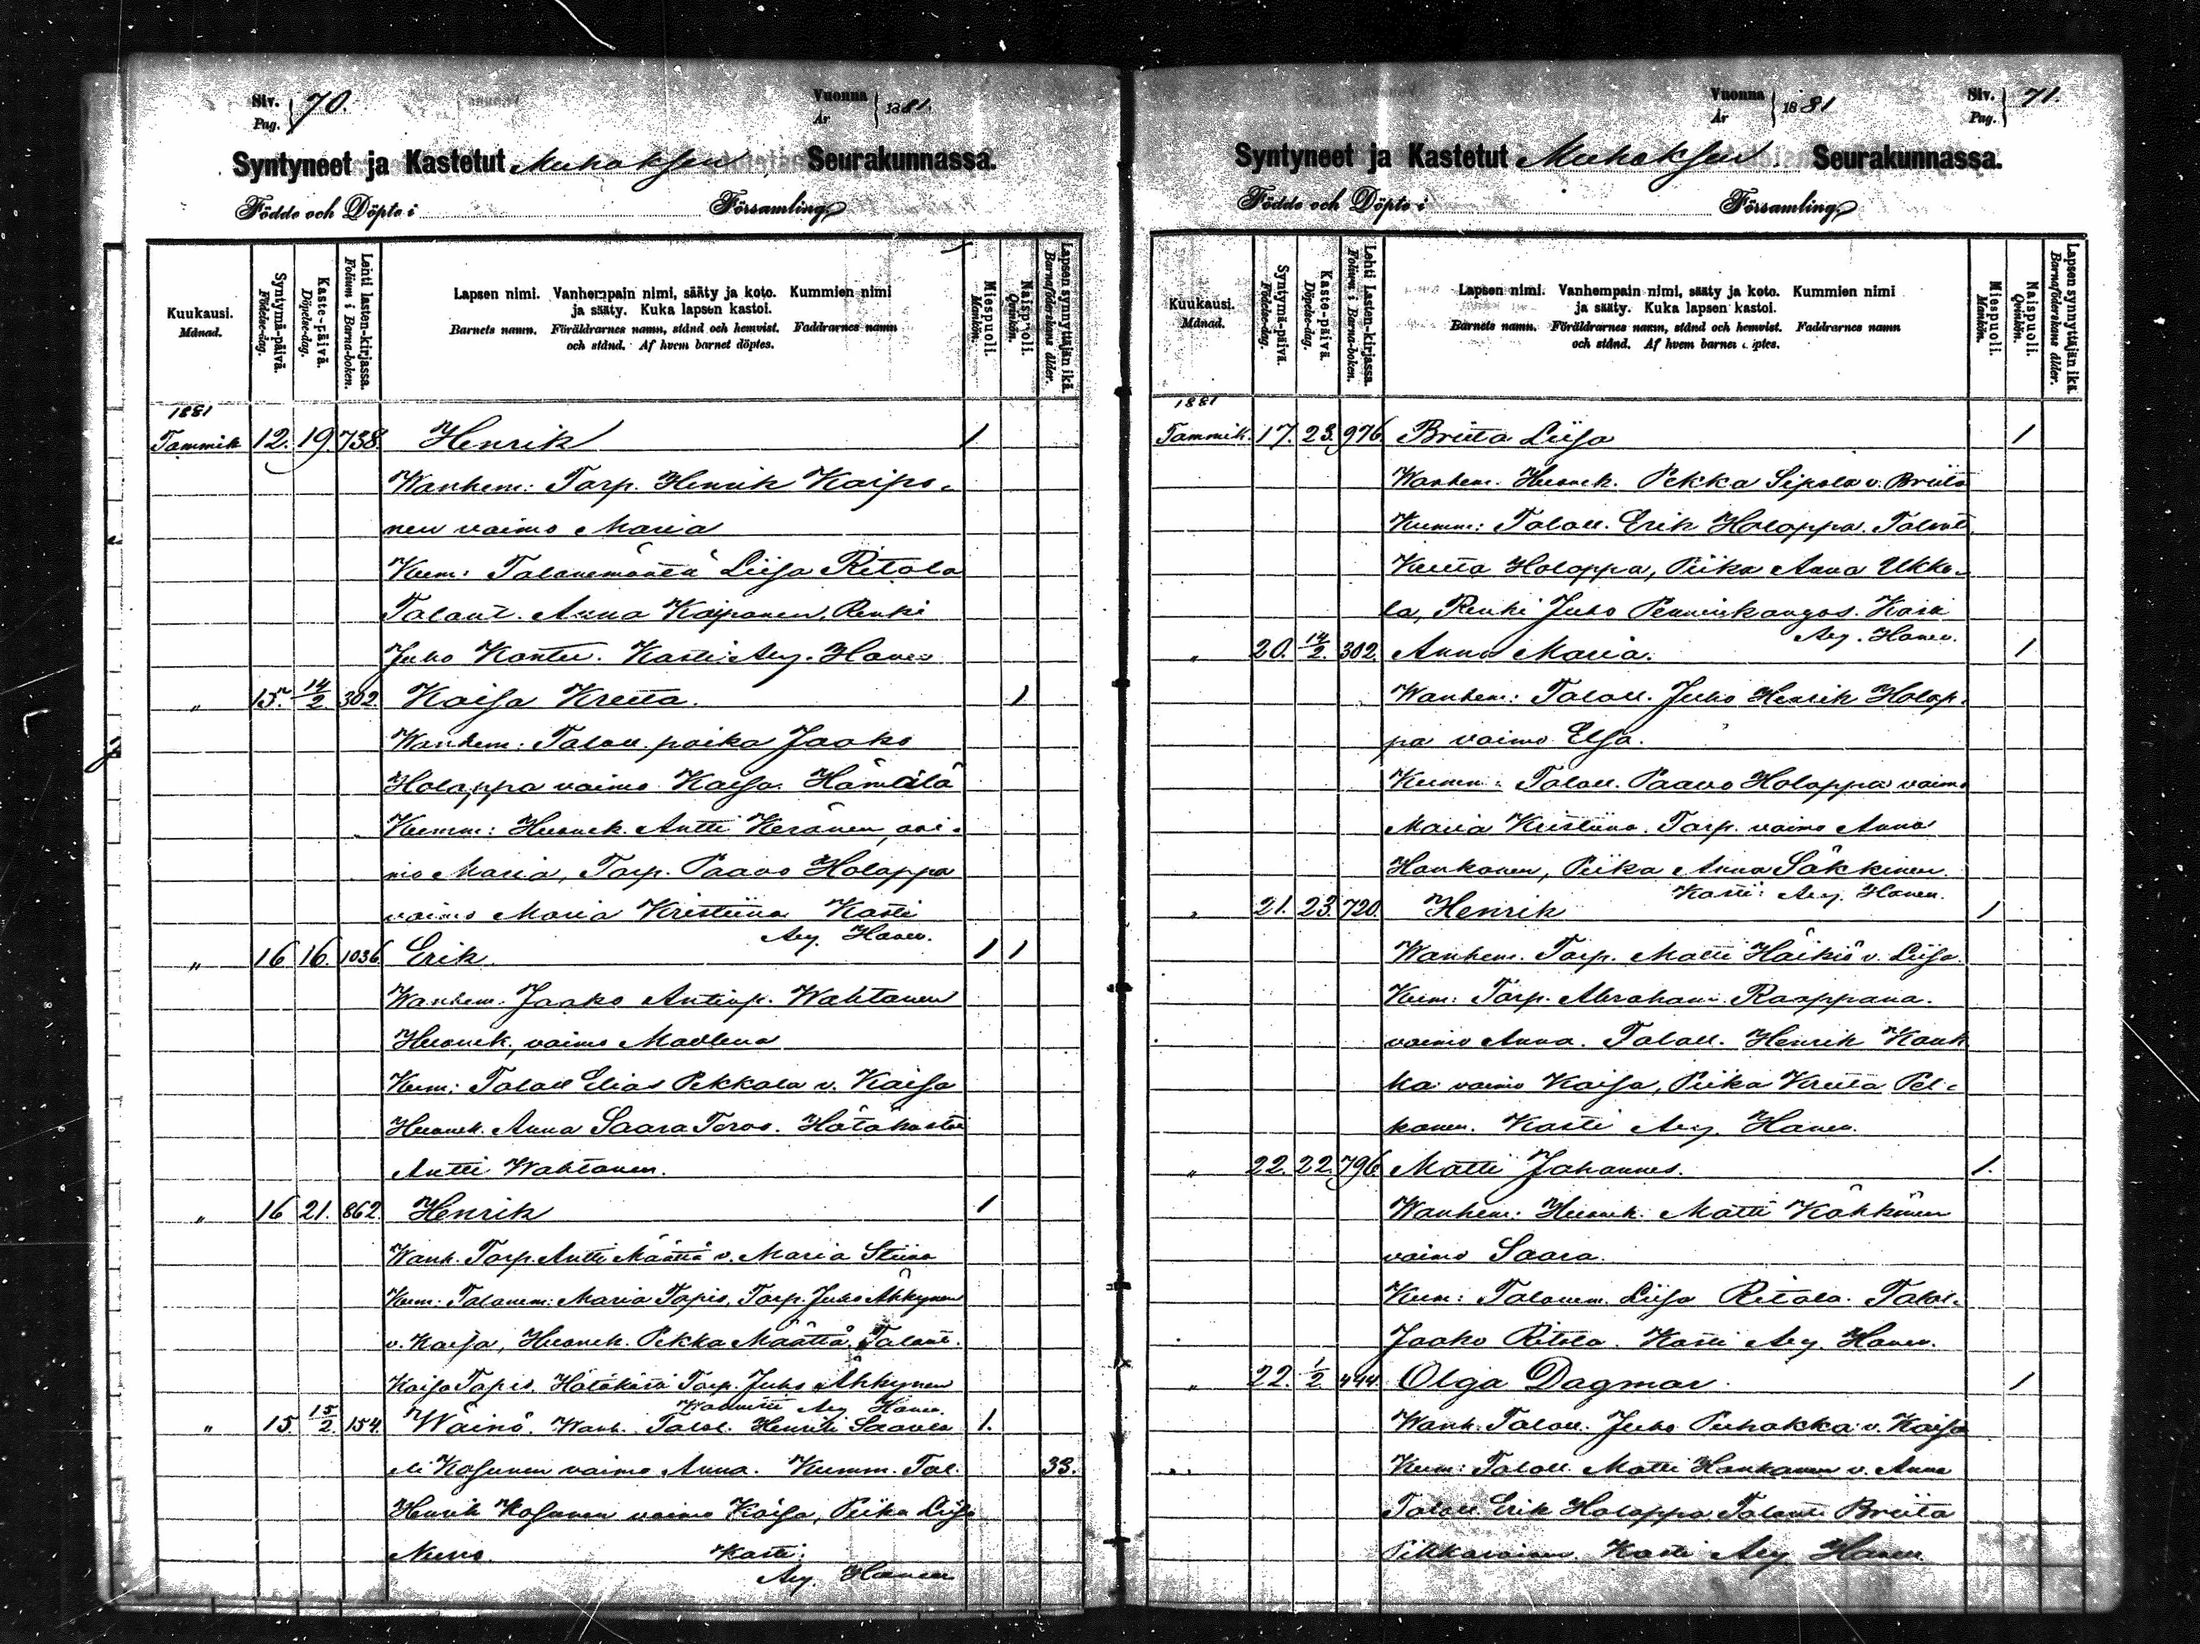 Siv. Pag. 70.
Vuonna År 1881.
Syntyneet ja Kastetut Muhoksen Seurakunnassa.
Födde och Döpte i Församling
Kuukausi. Månad.
Syntymä-päivä. Födelse-dag.
Kaste-päivä. Döpelse-dag.
Lehti lasten-kirjassa. Folium i Barna-boken.
Lapsen nimi. Vanhempain nimi, sääty ja koto. Kummien nimi
ja sääty. Kuka lapsen kastoi.
Barnets namn. Föräldrarnes namn, stånd och hemvist. Faddrarnes namn
och stånd. Af hvem barnet döptes.
Miespuoli. Mankön.
Naispuoli. Qvinkön.
Lapsen synnyttäjän ikä. Barnaföderskans ålder.
1881
Tammik 12. 19. 738. Henrik 1
Wanhem: Torp. Henrik Kaipo-
nen vaimo Maria
Kum: Talonemäntä Liisa Ritola
Talont. Anna Kaiponen, Renki
Juho Kontu. Kasti: Arg. Hanen
" 15. 14/2 302. Kaisa Kreeta. 1
Wanhem: Taloll. poika Jaako
Holappa vaimo Kaisa Hämälä
Kumm: Huonek. Antti Keränen, vai-
mo Maria, Torp. Paavo Holappa
vaimo Maria Kristiina Kasti
Arg. Hanen.
" 16 16. 1036 Erik 1 1
Wanhem. Jaako Antinp. Wahtanen
Huonek, vaimo Madlena
Kum: Taloll Elias Pekkala v. Kaisa
Huonek. Anna Saara Toros. Hätäkastoi
Antti Wahtanen.
" 16 21. 862. Henrik 1
Wanh. Torp. Antti Määttä v. Maria Stiina
Kum. Talonem. Maria Tapio, Torp. Juho Ähkynen
v. Kaisa, Huonek. Pekka Määttä, Talont.
Kaisa Tapio. Hätäkasti Torp. Juho Ähkynen
Arg Hanen.
" 15. 15/2. 154. Wäinö. Wanh. Talol. Henrik Saarela 1.
eli Kosunen vaimo Anna. Kumm. Tal. 33.
Henrik Kosunen vaimo Kaisa, Piika Liisa
Kasti:
Arg. Hanen
Vuonna År 1881
Siv. Pag. 71.
Syntyneet ja Kastetut Muhoksen Seurakunnassa.
Födde och Döpte i Församling
Kuukausi. Månad.
Syntymä-päivä. Födelse-dag.
Kaste-päivä. Döpelse-dag.
Lehti Lasten-kirjassa. Folium i Barna-boken.
Lapsen nimi. Vanhempain nimi, sääty ja koto. Kummien nimi
ja sääty. Kuka lapsen kastoi.
Barnets namn. Föräldrarnes namn, stånd och hemvist. Faddrarnes namn
och stånd. Af hvem barnet döptes.
Miespuoli. Mankön.
Naispuoli. Qvinkön.
Lapsen synnyttäjän ikä. Barnaföderskans ålder.
1881
Tammik. 17. 23. 976. Briita Liisa 1
Wanhem. Huonek. Pekka Sipola v. Briita
Kumm: Taloll. Erik Holappa. Talont.
Kreeta Holappa, Piika Anna Ukko-
la, Renki Juho Penninkangas. Kasti
Arg. Hanen.
" 20. 14/2. 302. Anna Maria. 1
Wanhem: Taloll. Juho Henrik Holap-
pa vaimo Elsa.
Kumm: Taloll. Paavo Holappa vaimo
Maria Kristiina. Torp. vaimo Anna
Honkanen, Piika Anna Säkkinen.
Kasti: Arg. Hanen.
" 21. 23. 720. Henrik 1
Wanhem. Torp. Matti Häikiö v. Liisa.
Kum: Torp. Abraham Raappana.
vaimo Anna. Taloll. Henrik Kauk
ka vaimo Kaisa, Piika Kreeta Pel-
konen. Kasti Arg. Hanen.
" 22. 22. 796 Matti Johannes. 1.
Wanhem: Huonek. Matti Kähkönen
vaimo Saara.
Kum: Talonem. Liisa Ritola. Talol.
Jaako Ritola. Kasti Arg. Hanen.
" 22. 1/2 444. Olga Dagmar. 1
Wanh. Taloll. Juho Puhakka v. Kaisa
Kum: Taloll. Matti Honkanen v. Anna
Taloll. Erik Holappa Talont. Briita
Pilkkarainen. Kasti Arg. Hanen.